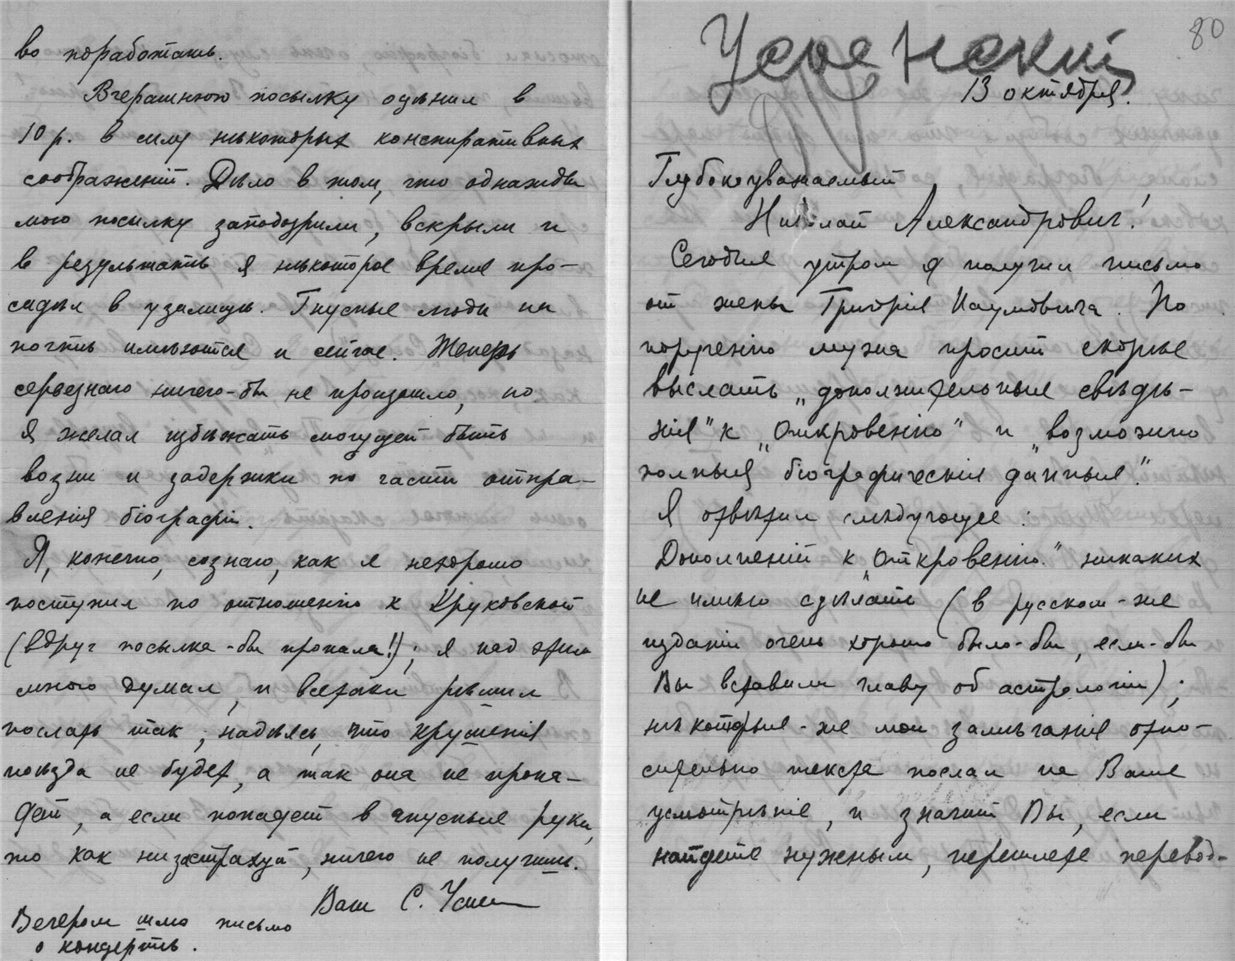 во поработать.
Вчерашнюю посылку оцѣнил в
10 р. в силу нѣкоторых конспиративных
соображеній. Дѣло в том, что однажды
мою посылку заподозрили, вскрыли и
в результатѣ я нѣкоторое время про-
сидѣл в узилищѣ. Гнусные люди на
почтѣ имѣются и сейчас. Теперь
серьезнаго ничего-бы не произошло, но
я желал избѣжать могущей быть
возни и задержки по части отпра-
вленія біографіи.
Я, конечно, сознаю, как я нехорошо
поступил по отношенію к Круковской
(вдруг посылка-бы пропала!!); я над этим
много думал, и всетаки рѣшил
послать так, надѣясь, что крушенія
поѣзда не будет, а так она не пропа-
дет, а если попадет в гнусные руки,
то как ни застрахуй, ничего не получишь.
Ваш С. Успен
Вечером шлю письмо
о концертѣ.
80
Успенский
13 октября.
Глубокоуважаемый
Николай Александрович!
Сегодня утром я получил письмо
от жены Григорія Наумовича. По
порученію мужа просит скорѣе
выслать „дополнительные свѣдѣ-
нія" к „Откровенію" и „возможно
полныя біографическія данныя".
Я отвѣтил слѣдующее:
Дополненій к „Откровенію" никаких
не имѣю сдѣлать (в русском-же
изданіи очень хорошо было-бы, если-бы
Вы вставили главу об астрологіи);
нѣкоторые-же мои замѣчанія отно-
сительно текста послал на Ваше
усмотрѣніе, и значит Вы, если
найдете нужным, перешлете перевод-